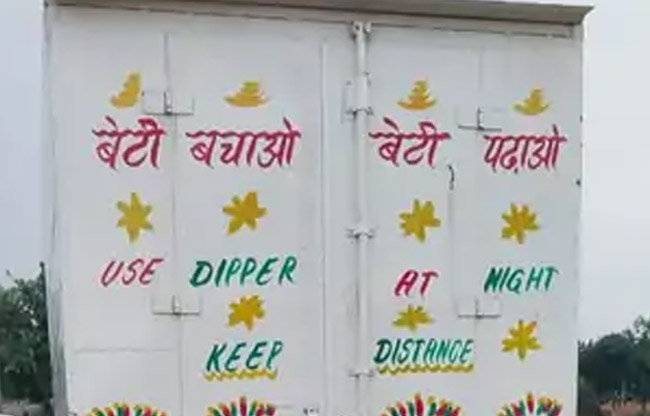 बेटी बचाओ बेटी पढ़ाओ
USE DIPPER AT NIGHT
KEEP DISTANCE